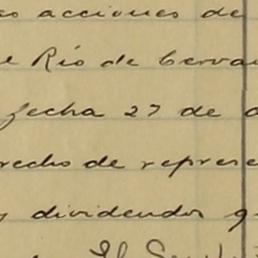 as acciones de
Río de Cerva
fecha 27 de
recho de represe
dividendos q
El Se